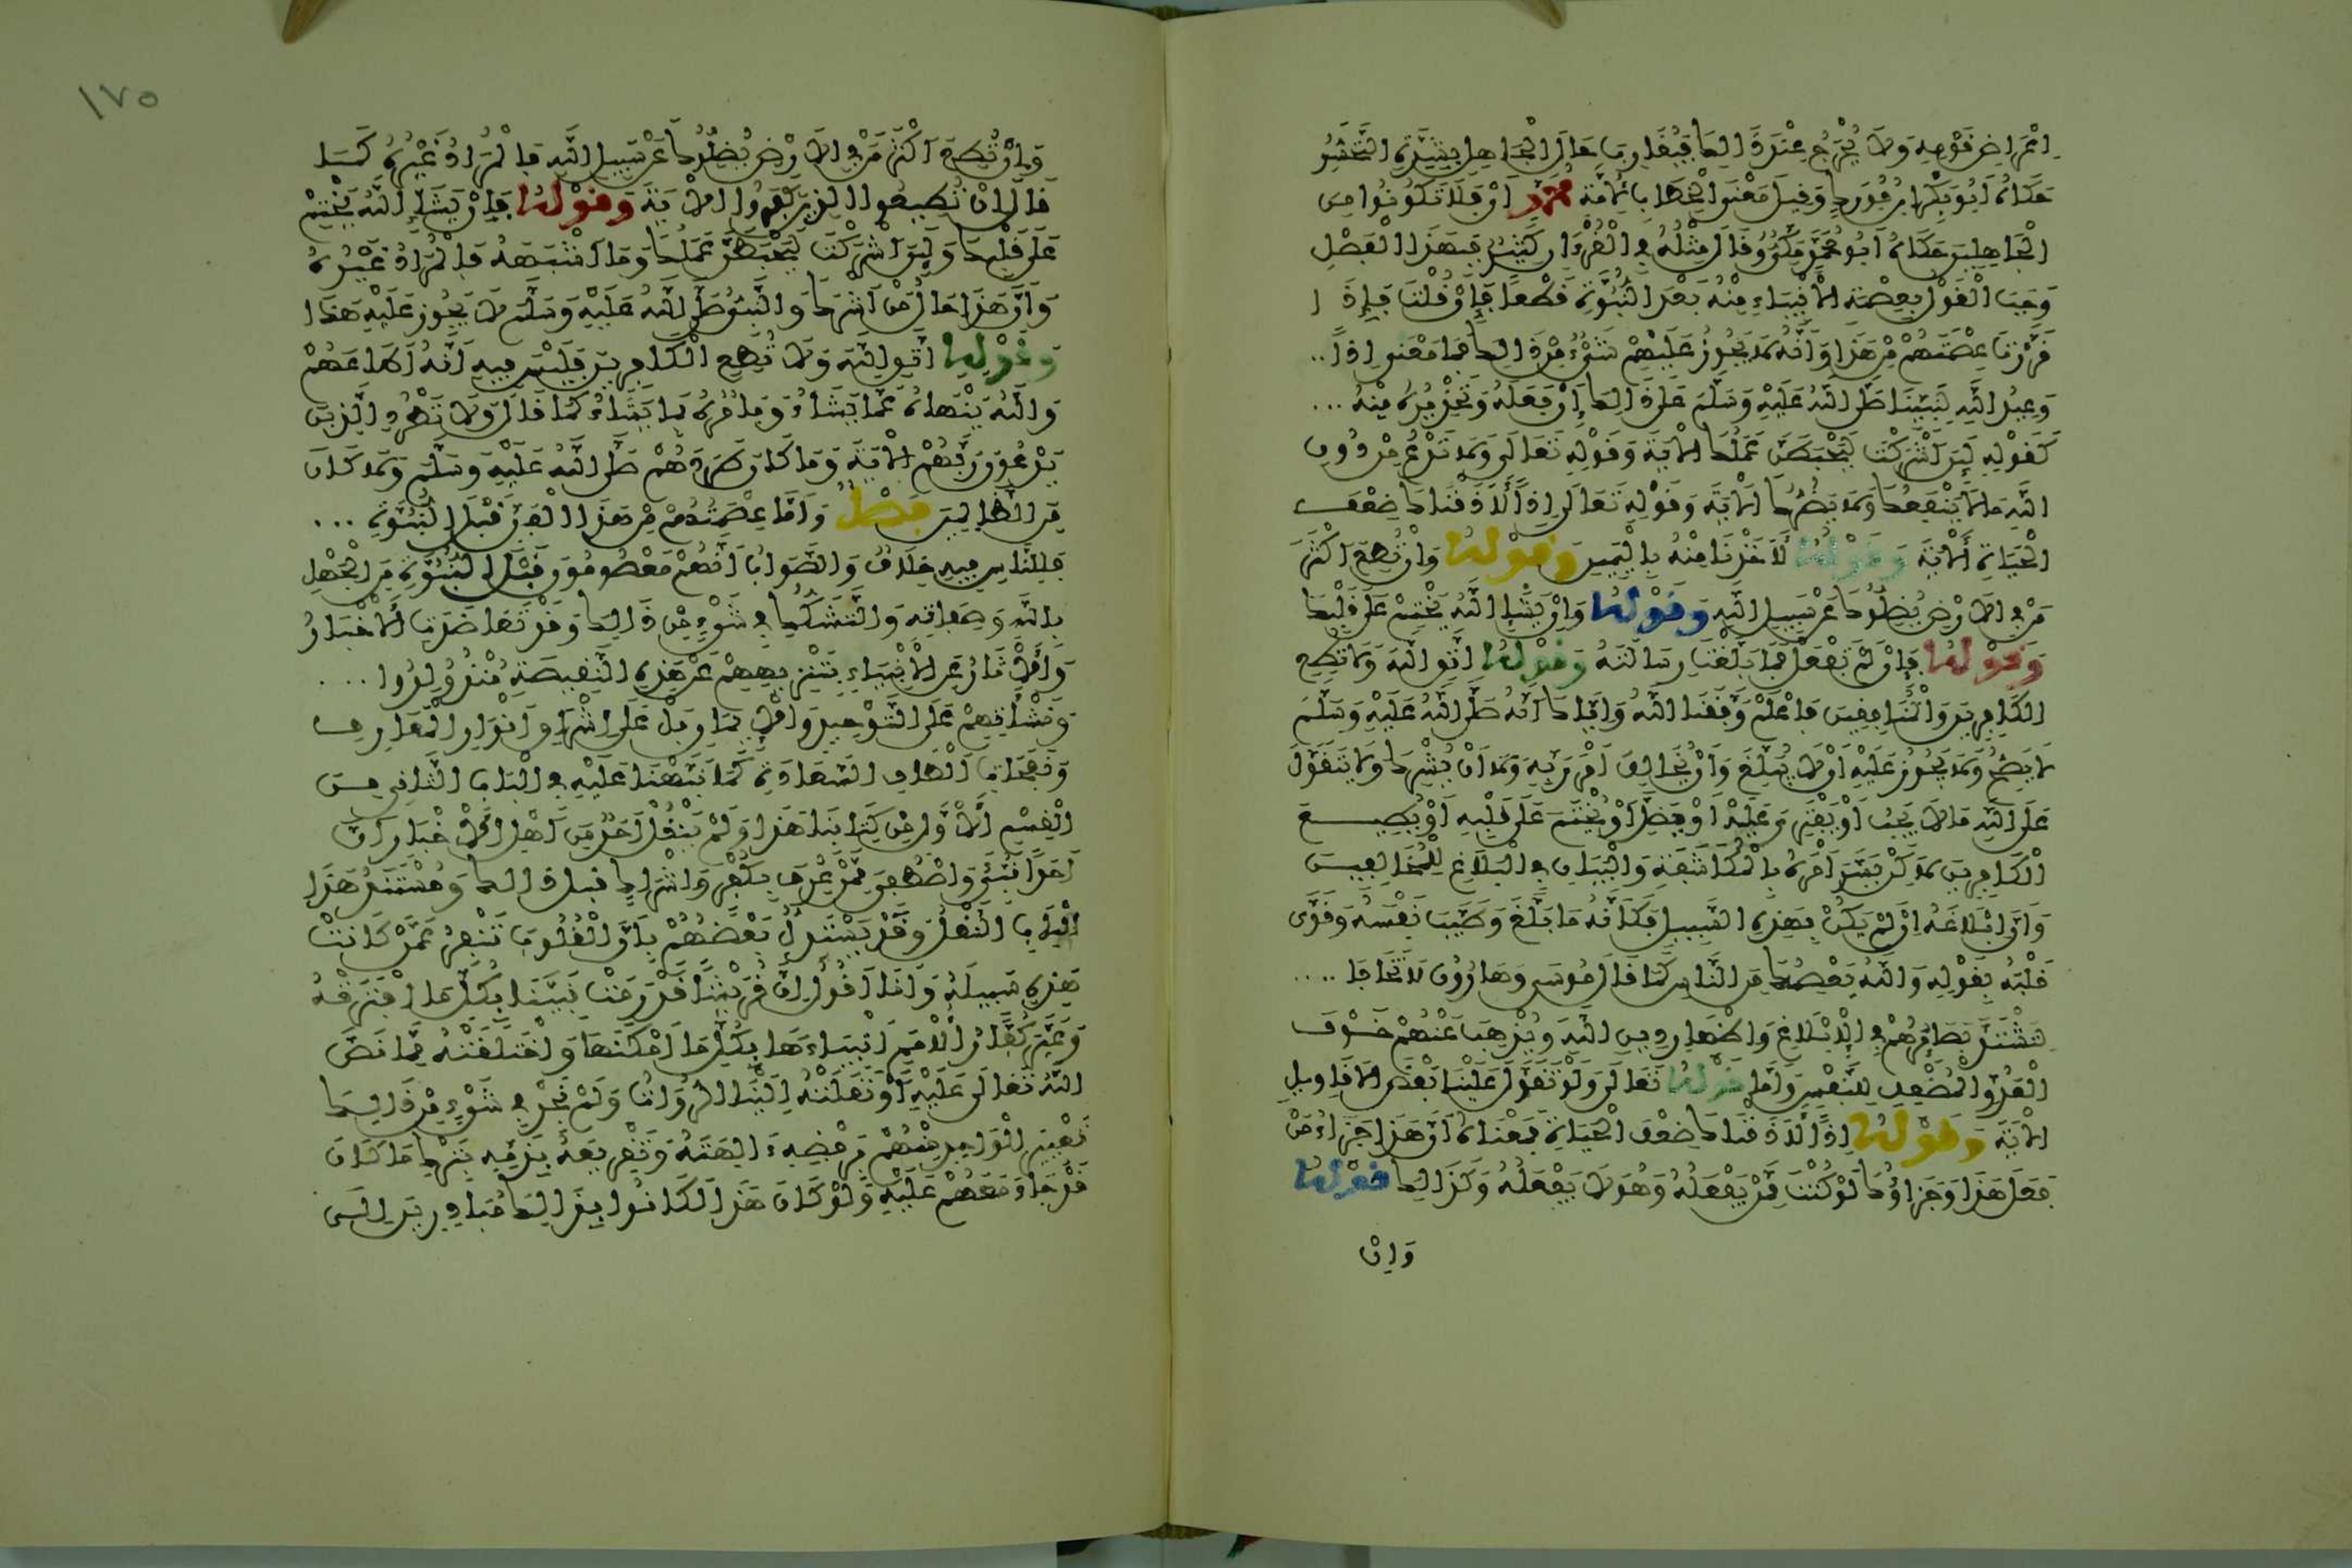 اعراض قومه ولا يخرج عند ذلك فيقارب حال الجاهل بشدة التحسر
حكاه أبو بكر ابن فورك وقيل معنى الخطاب لأمة محمد أي فلا تكونوا من
الجاهلين حكاه أبو محمد مكي وقال مثله في القرءان كثير فبهذا الفضل
وجب القول بعصمة الأنبياء منه بعد النبوة قطعا فإن قلت فإذا
قررت عصمتهم من هذا وأنه لا يجوز عليهم شيء من ذلك فما معنى إذا ..
وعيد الله لنبينا صلى الله عليه وسلم على ذلك إن فعله وتحذيره منه ...
كقوله لئن أشركت ليحبطن عملك الآية وقوله تعالى ولا تدع من دون
الله ما لا ينفعك ولا يضرك الآية وقوله تعالى إذا لأذقناك ضعف
الحياة الآية وقوله لأخذنا منه باليمين وقوله وإن تطع أكثر
من في الأرض يضلوك عن سبيل الله وقوله وإن يشإ الله يختم على قلبك
وقوله فإن لم تفعل فما بلغت رسالته وقوله اتق الله ولا تطع
الكافرين والمنافقين فاعلم وفقنا الله وإياك أنه صلى الله عليه وسلم
لا يصح ولا يجوز عليه أن لا يبلغ وأن يخالف أمر ربه ولا أن يشرك ولا يتقول
على الله ما لا يجب أو يفتري عليه أو يضل أو يختم على قلبه أو يطيع
الكافرين لاكن يسر أمره بالمكاشفة والبيان في البلاغ للمخالفين
وأن إبلاغه إن لم يكن بهذه السبيل فكأنه ما بلغ وطيب نفسه وقوى
قلبه بقوله والله يعصمك من الناس كما قال لموسى وهارون لا تخافا ....
لتشتد بصائرهم في الإبلاغ وإظهار دين الله ويذهب عنهم خوف
العدو المضعف للنفس وأما قوله تعالى ولو تقول علينا بعض الأقاويل
الآية وقوله إذا لأذقناك ضعف الحياة فمعناه أن هذا جزاء من
فعل هذا وجزاؤك لو كنت ممن يفعله وهو لا يفعله وكذلك قوله
وإن
١٧٥
وإن تطع أكثر من في الأرض يضلوك عن سبيل الله فالمراد غيره كما
قال إن تطيعوا الذين كفروا الآية وقوله فإن يشإ الله يختم
على قلبك ولئن أشركت ليحبطن عملك وما أشبهه فالمراد غيره
وأن هذا حال من أشرك والنبي صلى الله عليه وسلم لا يجوز عليه هذا
وقوله اتق الله ولا تطع الكافرين فليس فيه أنه أطاعهم
والله ينهاه عما يشاء ويأمره بما يشاء كما قال ولا تطرد الذين
يدعون ربهم الآية وما كان طردهم صلى الله عليه وسلم ولا كان
من الظالمين فصل وأما عصمتهم من هذا الفن قبل النبوة ...
فللناس فيه خلاف والصواب أنهم معصومون قبل النبوة من الجهل
بالله وصفاته والتشكك في شيء من ذلك وقد تعاضدت الأخبار
والآثار عن الأنبياء بتنزيههم عن هذه النقيصة منذ ولدوا ...
ونشأتهم على التوحيد والإيمان بل على إشراق أنوار المعارف
ونفحات ألطاف السعادة كما نبهنا عليه في الباب الثاني من
القسم الأول من كتابنا هذا ولم ينقل أحد من أهل الأخبار أن
أحدا نبئ واصطفي ممن عرف بكفر وإشراك قبل ذلك ومستند هذا
الباب النقل وقد يستدل بعضهم بأن القلوب تنفر عمن كانت
هذه سبيله وأنا أقول إن قريشا قد رمت نبينا بكل ما افترته
وعير كفار الأمم أنبياءها بكل ما أمكنها واختلقته مما نص
الله تعالى عليه أو نقلته إلينا الرواة ولم نجد في شيء من ذلك
تعييرا لواحد منهم برفضه ءالهته وتقريعه بذمه بترك ما كان
قد جامعهم عليه ولو كان هذا لكانوا بذلك مبادرين